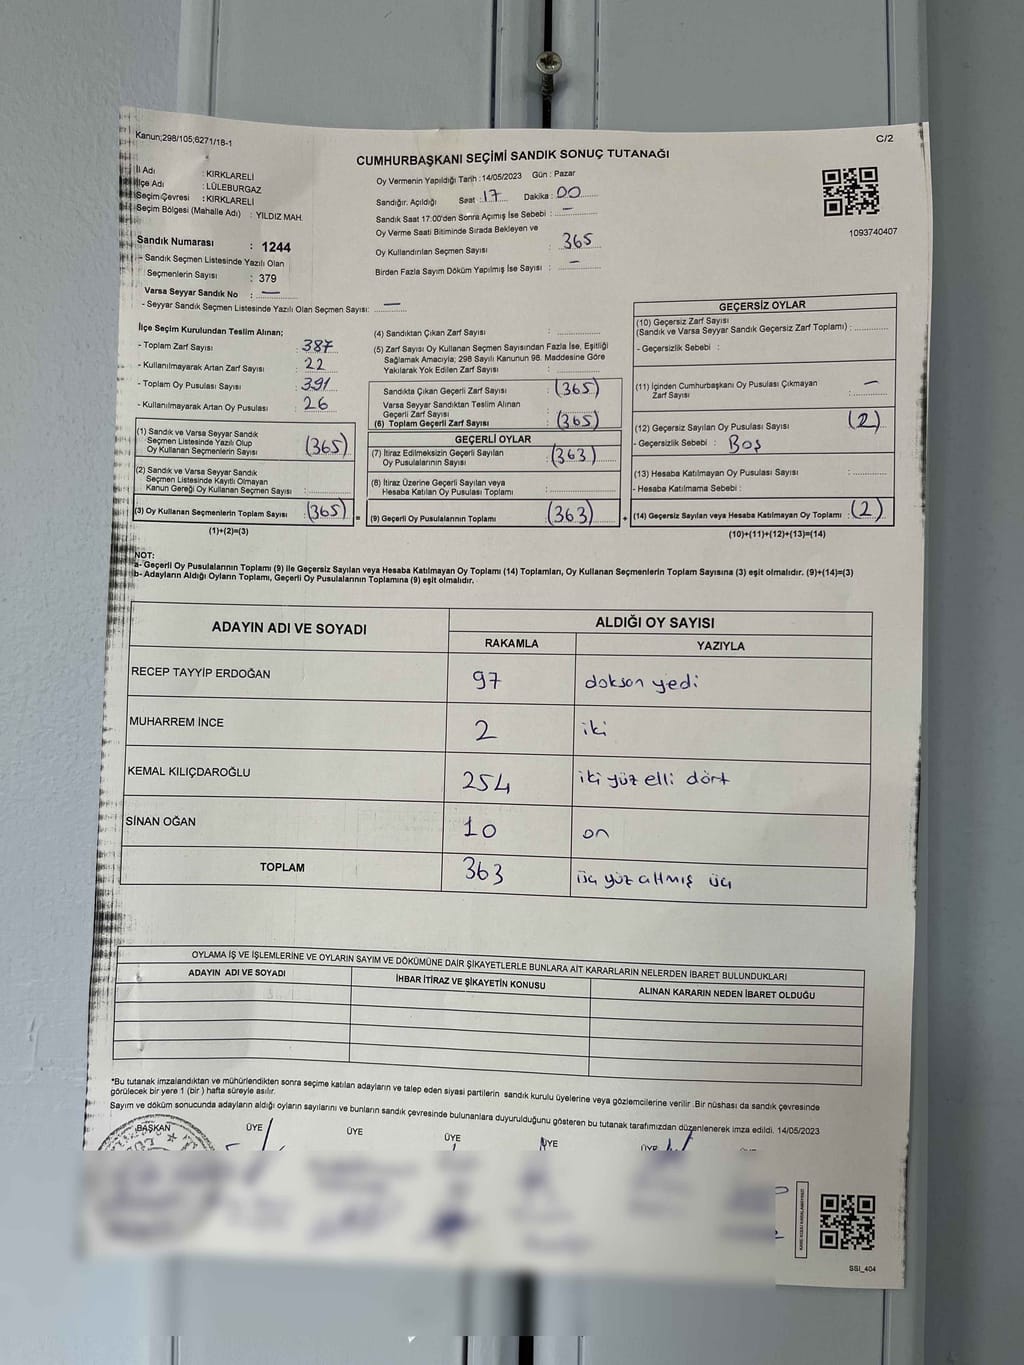 Kanun;298/105;6271/18-1
C/2
CUMHURBAŞKANI SEÇİMİ SANDIK SONUÇ TUTANAĞI
İl Adı : KIRKLARELİ
İlçe Adı : LÜLEBURGAZ
Seçim Çevresi : KIRKLARELİ
Seçim Bölgesi (Mahalle Adı) : YILDIZ MAH.
Sandık Numarası : 1244
- Sandık Seçmen Listesinde Yazılı Olan
Seçmenlerin Sayısı : 379
Varsa Seyyar Sandık No : —
- Seyyar Sandık Seçmen Listesinde Yazılı Olan Seçmen Sayısı: —
Oy Vermenin Yapıldığı Tarih : 14/05/2023 Gün : Pazar
Sandığın Açıldığı Saat : 17 Dakika : 00
Sandık Saat 17:00'den Sonra Açılmış İse Sebebi : —
Oy Verme Saati Bitiminde Sırada Bekleyen ve
Oy Kullandırılan Seçmen Sayısı : 365
Birden Fazla Sayım Döküm Yapılmış İse Sayısı : —
1093740407
İlçe Seçim Kurulundan Teslim Alınan;
- Toplam Zarf Sayısı : 387
- Kullanılmayarak Artan Zarf Sayısı : 22
- Toplam Oy Pusulası Sayısı : 391
- Kullanılmayarak Artan Oy Pusulası : 26
(1) Sandık ve Varsa Seyyar Sandık
Seçmen Listesinde Yazılı Olup
Oy Kullanan Seçmenlerin Sayısı : (365)
(2) Sandık ve Varsa Seyyar Sandık
Seçmen Listesinde Kayıtlı Olmayan
Kanun Gereği Oy Kullanan Seçmen Sayısı :
(3) Oy Kullanan Seçmenlerin Toplam Sayısı : (365)
(1)+(2)=(3)
(4) Sandıktan Çıkan Zarf Sayısı :
(5) Zarf Sayısı Oy Kullanan Seçmen Sayısından Fazla İse, Eşitliği
Sağlamak Amacıyla; 298 Sayılı Kanunun 98. Maddesine Göre
Yakılarak Yok Edilen Zarf Sayısı :
Sandıkta Çıkan Geçerli Zarf Sayısı : (365)
Varsa Seyyar Sandıktan Teslim Alınan
Geçerli Zarf Sayısı :
(6) Toplam Geçerli Zarf Sayısı : (365)
GEÇERLİ OYLAR
(7) İtiraz Edilmeksizin Geçerli Sayılan
Oy Pusulalarının Sayısı : (363)
(8) İtiraz Üzerine Geçerli Sayılan veya
Hesaba Katılan Oy Pusulası Toplamı :
= (9) Geçerli Oy Pusulalarının Toplamı : (363) +
GEÇERSİZ OYLAR
(10) Geçersiz Zarf Sayısı
(Sandık ve Varsa Seyyar Sandık Geçersiz Zarf Toplamı) :
- Geçersizlik Sebebi :
(11) İçinden Cumhurbaşkanı Oy Pusulası Çıkmayan
Zarf Sayısı : —
(12) Geçersiz Sayılan Oy Pusulası Sayısı : (2)
- Geçersizlik Sebebi : Boş
(13) Hesaba Katılmayan Oy Pusulası Sayısı :
- Hesaba Katılmama Sebebi :
(14) Geçersiz Sayılan veya Hesaba Katılmayan Oy Toplamı : (2)
(10)+(11)+(12)+(13)=(14)
NOT:
a- Geçerli Oy Pusulalarının Toplamı (9) ile Geçersiz Sayılan veya Hesaba Katılmayan Oy Toplamı (14) Toplamları, Oy Kullanan Seçmenlerin Toplam Sayısına (3) eşit olmalıdır. (9)+(14)=(3)
b- Adayların Aldığı Oyların Toplamı, Geçerli Oy Pusulalarının Toplamına (9) eşit olmalıdır.
ADAYIN ADI VE SOYADI
ALDIĞI OY SAYISI
RAKAMLA YAZIYLA
RECEP TAYYİP ERDOĞAN 97 dokson yedi
MUHARREM İNCE 2 iki
KEMAL KILIÇDAROĞLU 254 iki yüz elli dört
SİNAN OĞAN 10 on
TOPLAM 363 üç yüz altmış üç
OYLAMA İŞ VE İŞLEMLERİNE VE OYLARIN SAYIM VE DÖKÜMÜNE DAİR ŞİKAYETLERLE BUNLARA AİT KARARLARIN NELERDEN İBARET BULUNDUKLARI
ADAYIN ADI VE SOYADI İHBAR İTİRAZ VE ŞİKAYETİN KONUSU ALINAN KARARIN NEDEN İBARET OLDUĞU
*Bu tutanak imzalandıktan ve mühürlendikten sonra seçime katılan adayların ve talep eden siyasi partilerin sandık kurulu üyelerine veya gözlemcilerine verilir .Bir nüshası da sandık çevresinde
görülecek bir yere 1 (bir ) hafta süreyle asılır.
Sayım ve döküm sonucunda adayların aldığı oyların sayılarını ve bunların sandık çevresinde bulunanlara duyurulduğunu gösteren bu tutanak tarafımızdan düzenlenerek imza edildi. 14/05/2023
BAŞKAN ÜYE ÜYE ÜYE ÜYE ÜYE
SSI_404